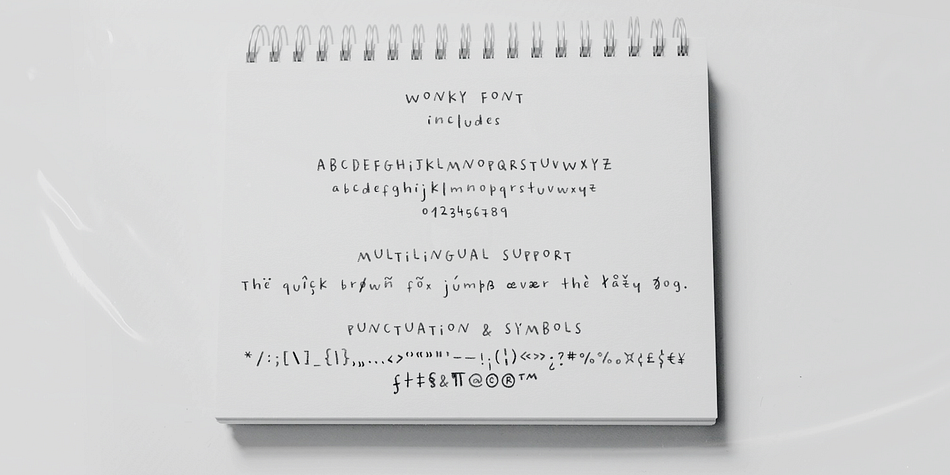 WONKY FONT
includes
ABCDEFGHiJKLMNOPQRSTUVWXYZ
abcdefghijklmnopqrstuvwxyz
0123456789
MULTiLiNGUAL SUPPORT
Thë quîçk brøwñ fõx júmpß œvær thè łåžy ðog.
PUNCTUATiON & SYMBOLS
*/:;[\]_{|},„…<>'"“”"'—–!¡(¦)«‹›»¿?#%‰¤¢£$€¥
ƒ†‡§&¶@©®™